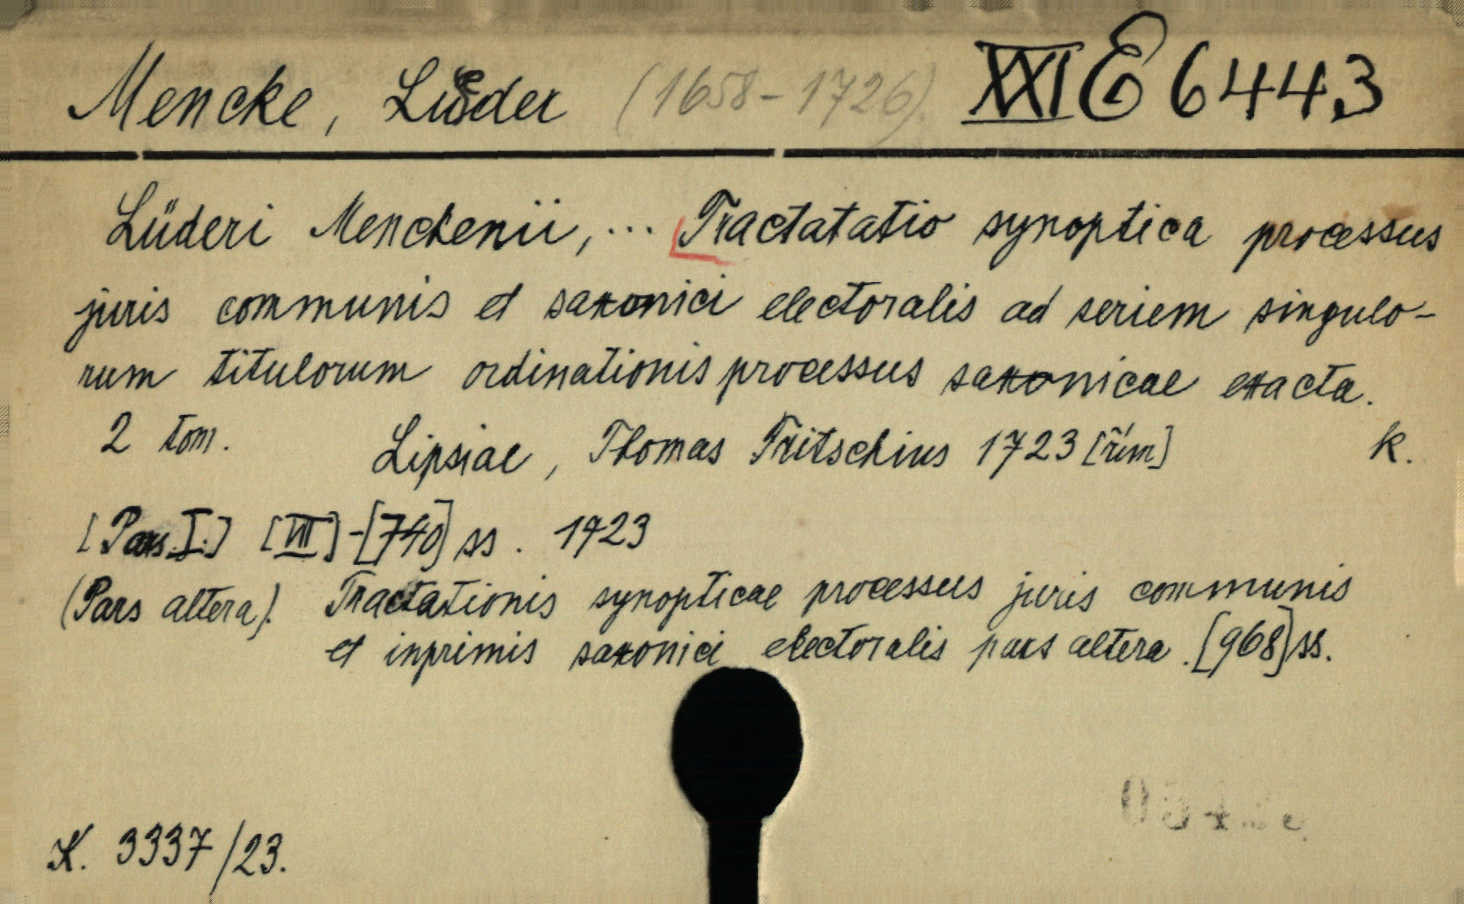 Mencke, Lüder (1658-1726). XXI E 6443
Lüderi Menckenii, ... Tractatatio synoptica processus
juris communis et saxonici electoralis ad seriem singulo-
rum titulorum ordinationis processus saxonicae exacta.
2 tom. Lipsiae, Thomas Fritschius 1723 [řím] k.
[Pars I.] [VII]-[740] ss. 1723
(Pars altera). Tractationis synopticae processus juris communis
et inprimis saxonici electoralis pars altera. [968] ss.
K. 3337/23.